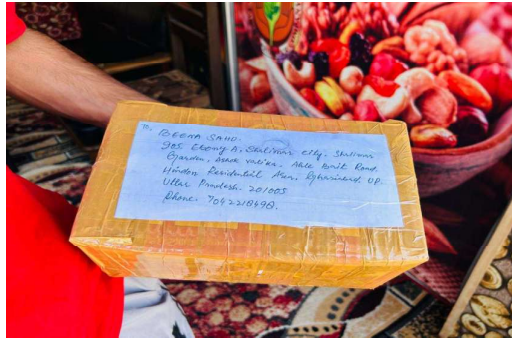 To,
BEENA SAHU.
905 Ebony A, Shalimar City, Shalimar
Garden, Ashok Vatika, Able Brik Road,
Hindon Residential Area, Ghaziabad, UP.
Uttar Pradesh. 201005
Phone: 7042218498.